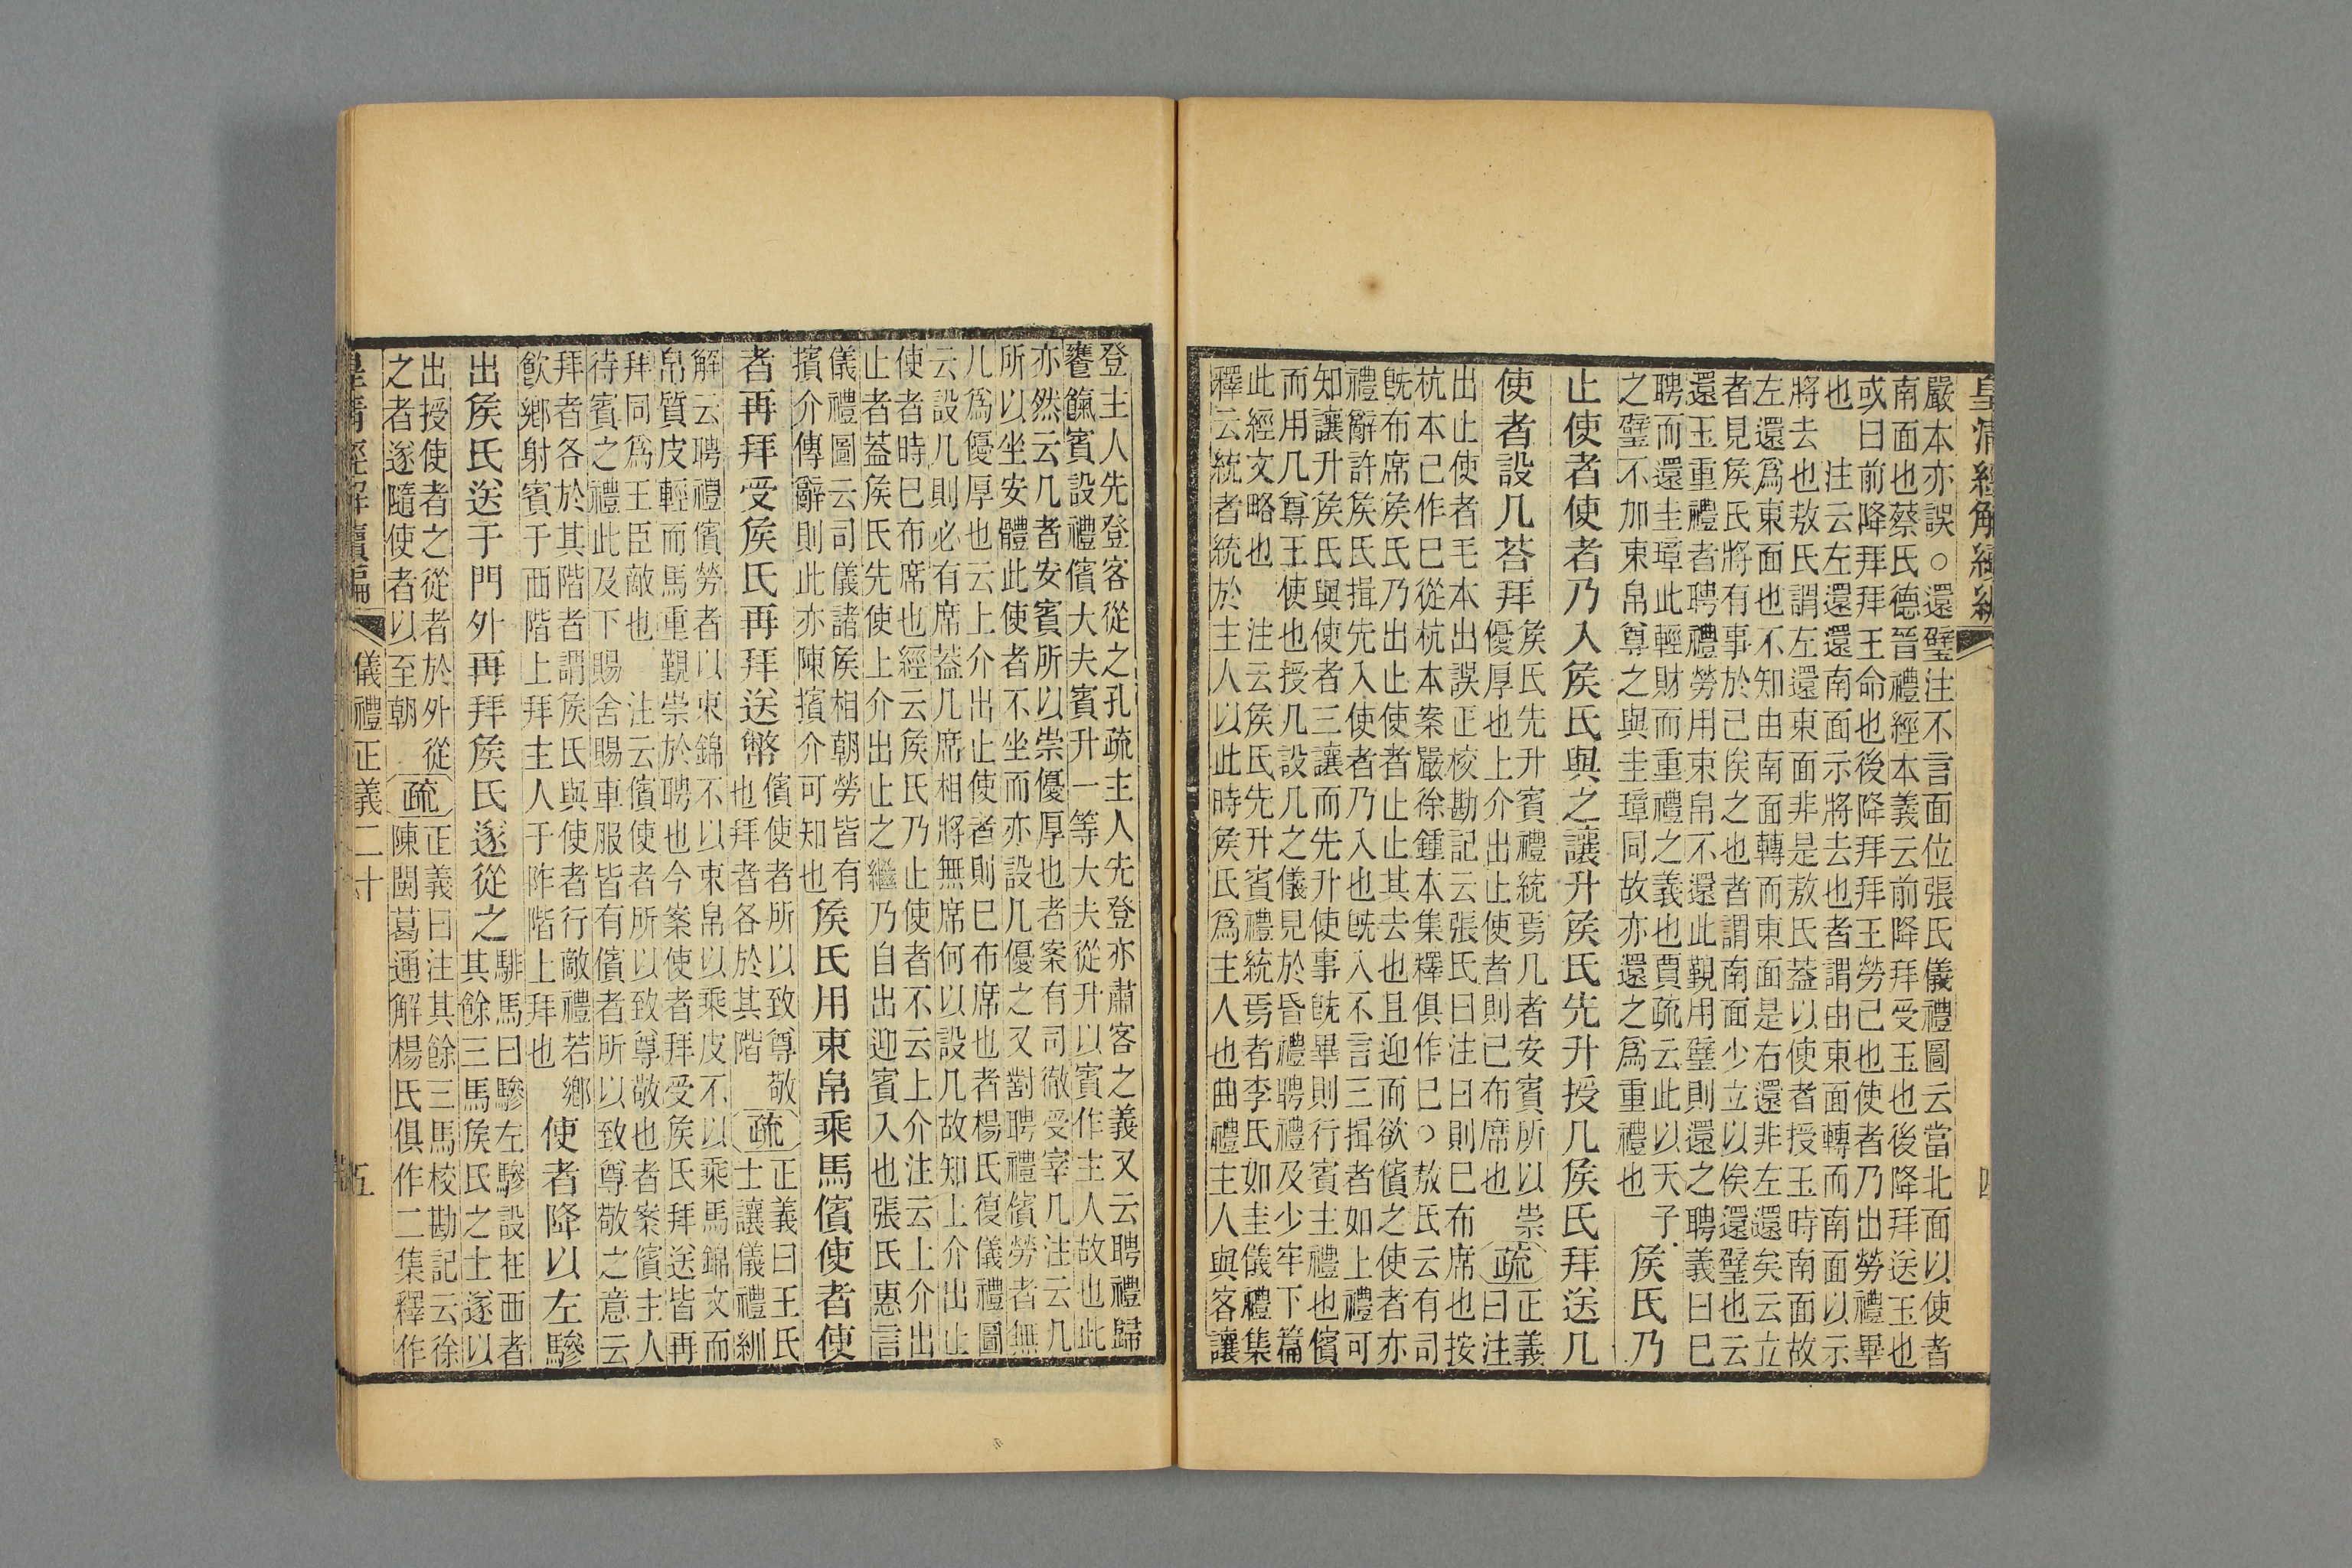 皇清經解續編
四
嚴本亦誤○還璧注不言面位張氏儀禮圖云當北面以使者
南面也蔡氏德晉禮經本義云前降拜受玉也後降拜送玉也
或曰前降拜拜王命也後降拜拜王勞己也使者乃出勞禮畢
也 注云左還還南面示將去也者謂由東面轉而南面以示
將去也敖氏謂左還東面非是敖氏葢以使者授玉時南面故
左還爲東面也不知由南面轉而東面是右還非左還矣云立
者見矦氏將有事於己俟之也者謂南面少立以俟還璧也云
還玉重禮者聘禮勞用束帛不還此覲用璧則還之聘義曰巳
聘而還圭璋此輕財而重禮之義也賈疏云此以天子
之璧不加束帛尊之與圭璋同故亦還之爲重禮也
矦氏乃
止使者使者乃入矦氏與之讓升矦氏先升授几矦氏拜送几
使者設几荅拜
矦氏先升賓禮統焉几者安賓所以崇
優厚也上介出止使者則已布席也
疏
正義
曰注
出止使者毛本出誤正校勘記云張氏曰注曰則巳布席也按
杭本已作巳從杭本案嚴徐鍾本集釋俱作巳○敖氏云有司
旣布席矦氏乃出止使者止止其去也且迎而欲儐之使者亦
禮辭許矦氏揖先入使者乃入也旣入不言三揖者如上禮可
知讓升矦氏與使者三讓而先升使事旣畢則行賓主禮也儐
而用几尊王使也授几設几之儀見於昏禮聘禮及少牢下篇
此經文略也 注云矦氏先升賓禮統焉者李氏如圭儀禮集
釋云統者統於主人以此時矦氏爲主人也曲禮主人與客讓
登主人先登客從之孔疏主人先登亦肅客之義又云聘禮歸
饔餼賓設禮儐大夫賓升一等大夫從升以賓作主人故也此
亦然云几者安賓所以崇優厚也者案有司徹受宰几注云几
所以坐安體此使者不坐而亦設几優之又劄聘禮儐勞者無
几爲優厚也云上介出止使者則巳布席也者楊氏復儀禮圖
云設几則必有席葢几席相將無席何以設几故知上介出止
使者時巳布席也經云矦氏乃止使者不云上介注云上介出
止者葢矦氏先使上介出止之繼乃自出迎賓入也張氏惠言
儀禮圖云司儀諸矦相朝勞皆有
擯介傳辭則此亦陳擯介可知也
矦氏用束帛乘馬儐使者使
者再拜受矦氏再拜送幣
儐使者所以致尊敬
也拜者各於其階
疏
正義曰王氏
士讓儀禮紃
解云聘禮儐勞者以束錦不以束帛以乘皮不以乘馬錦文而
帛質皮輕而馬重覲崇於聘也今案使者拜受矦氏拜送皆再
拜同爲王臣敵也 注云儐使者所以致尊敬也者案儐主人
待賓之禮此及下賜舍賜車服皆有儐者所以致尊敬之意云
拜者各於其階者謂矦氏與使者行敵禮若鄉
飮鄉射賓于西階上拜主人于阼階上拜也
使者降以左驂
出矦氏送于門外再拜矦氏遂從之
騑馬曰驂左驂設在西者
其餘三馬矦氏之士遂以
出授使者之從者於外從
之者遂隨使者以至朝
疏
正義曰注其餘三馬校勘記云徐
陳閩葛通解楊氏俱作二集釋作
皇清經解續編
儀禮正義二十
五